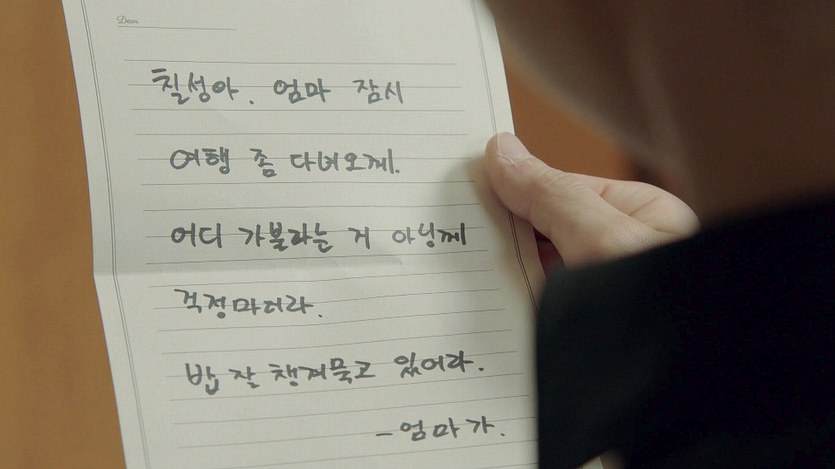 Dear
칠성아. 엄마 잠시
여행 좀 다녀오께.
어디 가불라는 거 아닝께
걱정마더라.
밥 잘 챙겨묵고 있어라.
-엄마가.